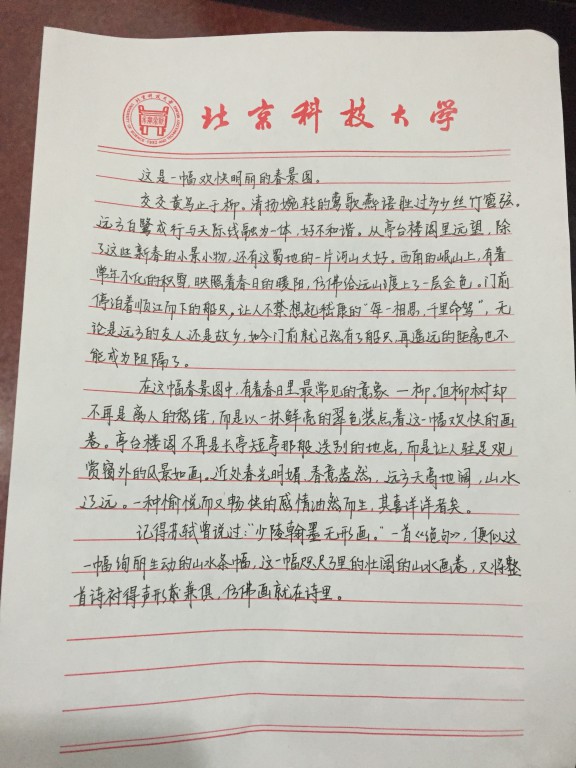 北京科技大学
这是一幅欢快明丽的春景图。
交交黄鸟止于柳。清扬婉转的莺歌燕语胜过多少丝竹管弦。
远方白鹭成行与天际线融为一体，好不和谐。从亭台楼阁里远望，除
了这旺新春的小景小物，还有这蜀地的一片河山大好。西南的岷山上，有着
常年不化的积雪，映照着春日的暖阳，仿佛给远山镀上了一层金色。门前
停泊着顺江而下的船只，让人不禁想起嵇康的“每一相思，千里命驾”，无
论是远方的友人还是故乡，如今门前就已然有了船只，再遥远的距离也不
能成为阻隔了。
在这幅春景图中，有着春日里最常见的意象—柳。但柳树却
不再是离人的愁绪，而是以一抹鲜亮的翠色装点着这一幅欢快的画
卷。亭台楼阁不再是长亭短亭那般送别的地点，而是让人驻足观
赏窗外的风景如画。近处春光明媚，春意盎然，远方天高地阔，山水
辽远。一种愉悦而又畅快的感情油然而生，其喜洋洋者矣。
记得苏轼曾说过：“少陵翰墨无形画。”一首《绝句》，便似这
一幅绚丽生动的山水条幅，这一幅咫尺万里的壮阔的山水画卷，又将整
首诗衬得声形兼俱，仿佛画就在诗里。